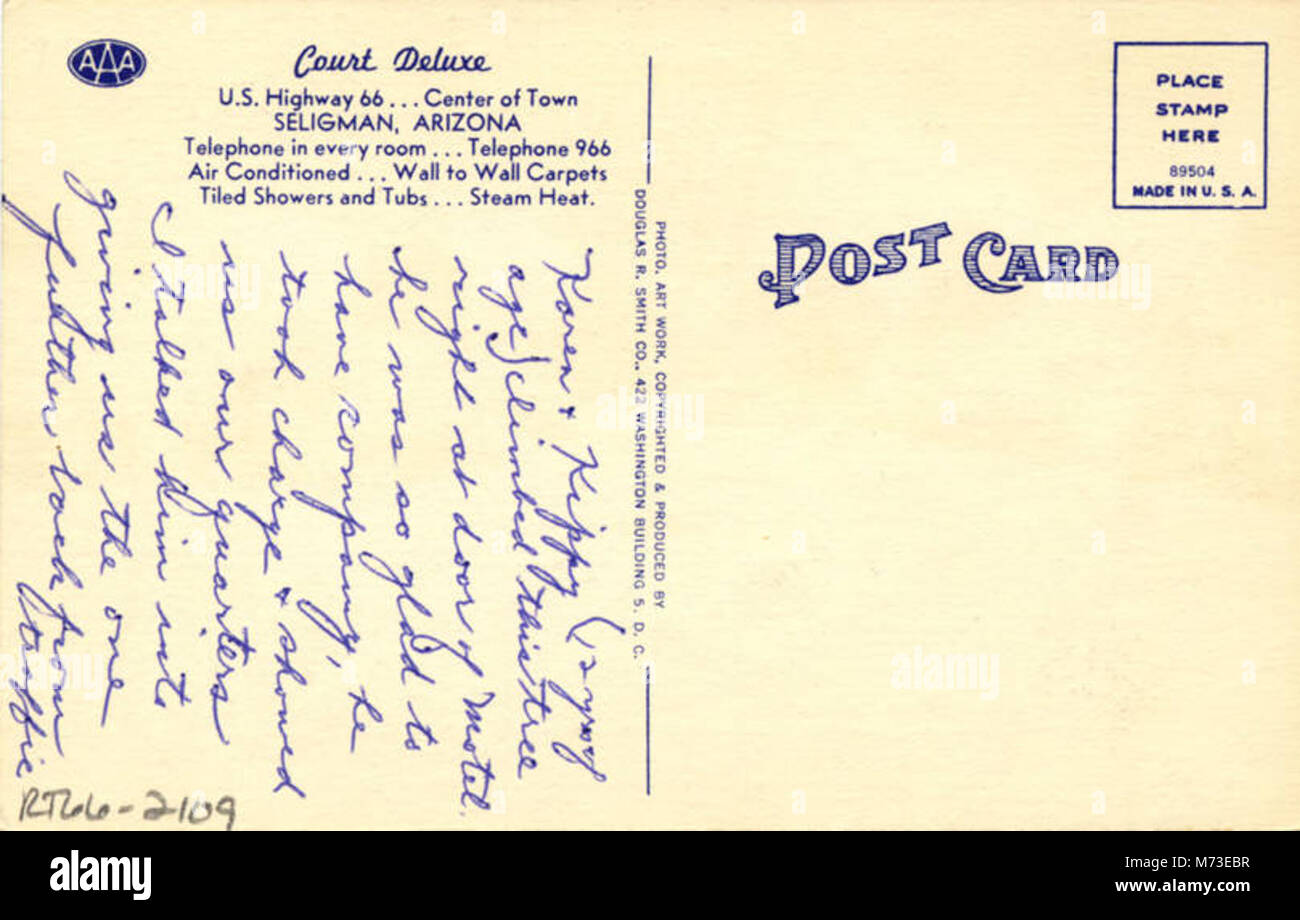 AAA
Court Deluxe
U.S. Highway 66 . . . Center of Town
SELIGMAN, ARIZONA
Telephone in every room . . . Telephone 966
Air Conditioned . . . Wall to Wall Carpets
Tiled Showers and Tubs . . . Steam Heat.
Karen & Kippy (12 yrs of
age) climbed this tree
right at door of Motel.
he was so glad to
have company, he
took charge & showed
us our quarters
I talked him into
giving us the one
further back from
traffic
RT66-2109
PHOTO, ART WORK, COPYRIGHTED & PRODUCED BY
DOUGLAS R. SMITH CO., 422 WASHINGTON BUILDING 5, D. C.
POST CARD
PLACE
STAMP
HERE
89504
MADE IN U. S. A.
alamy
alamy
M73EBR
www.alamy.com